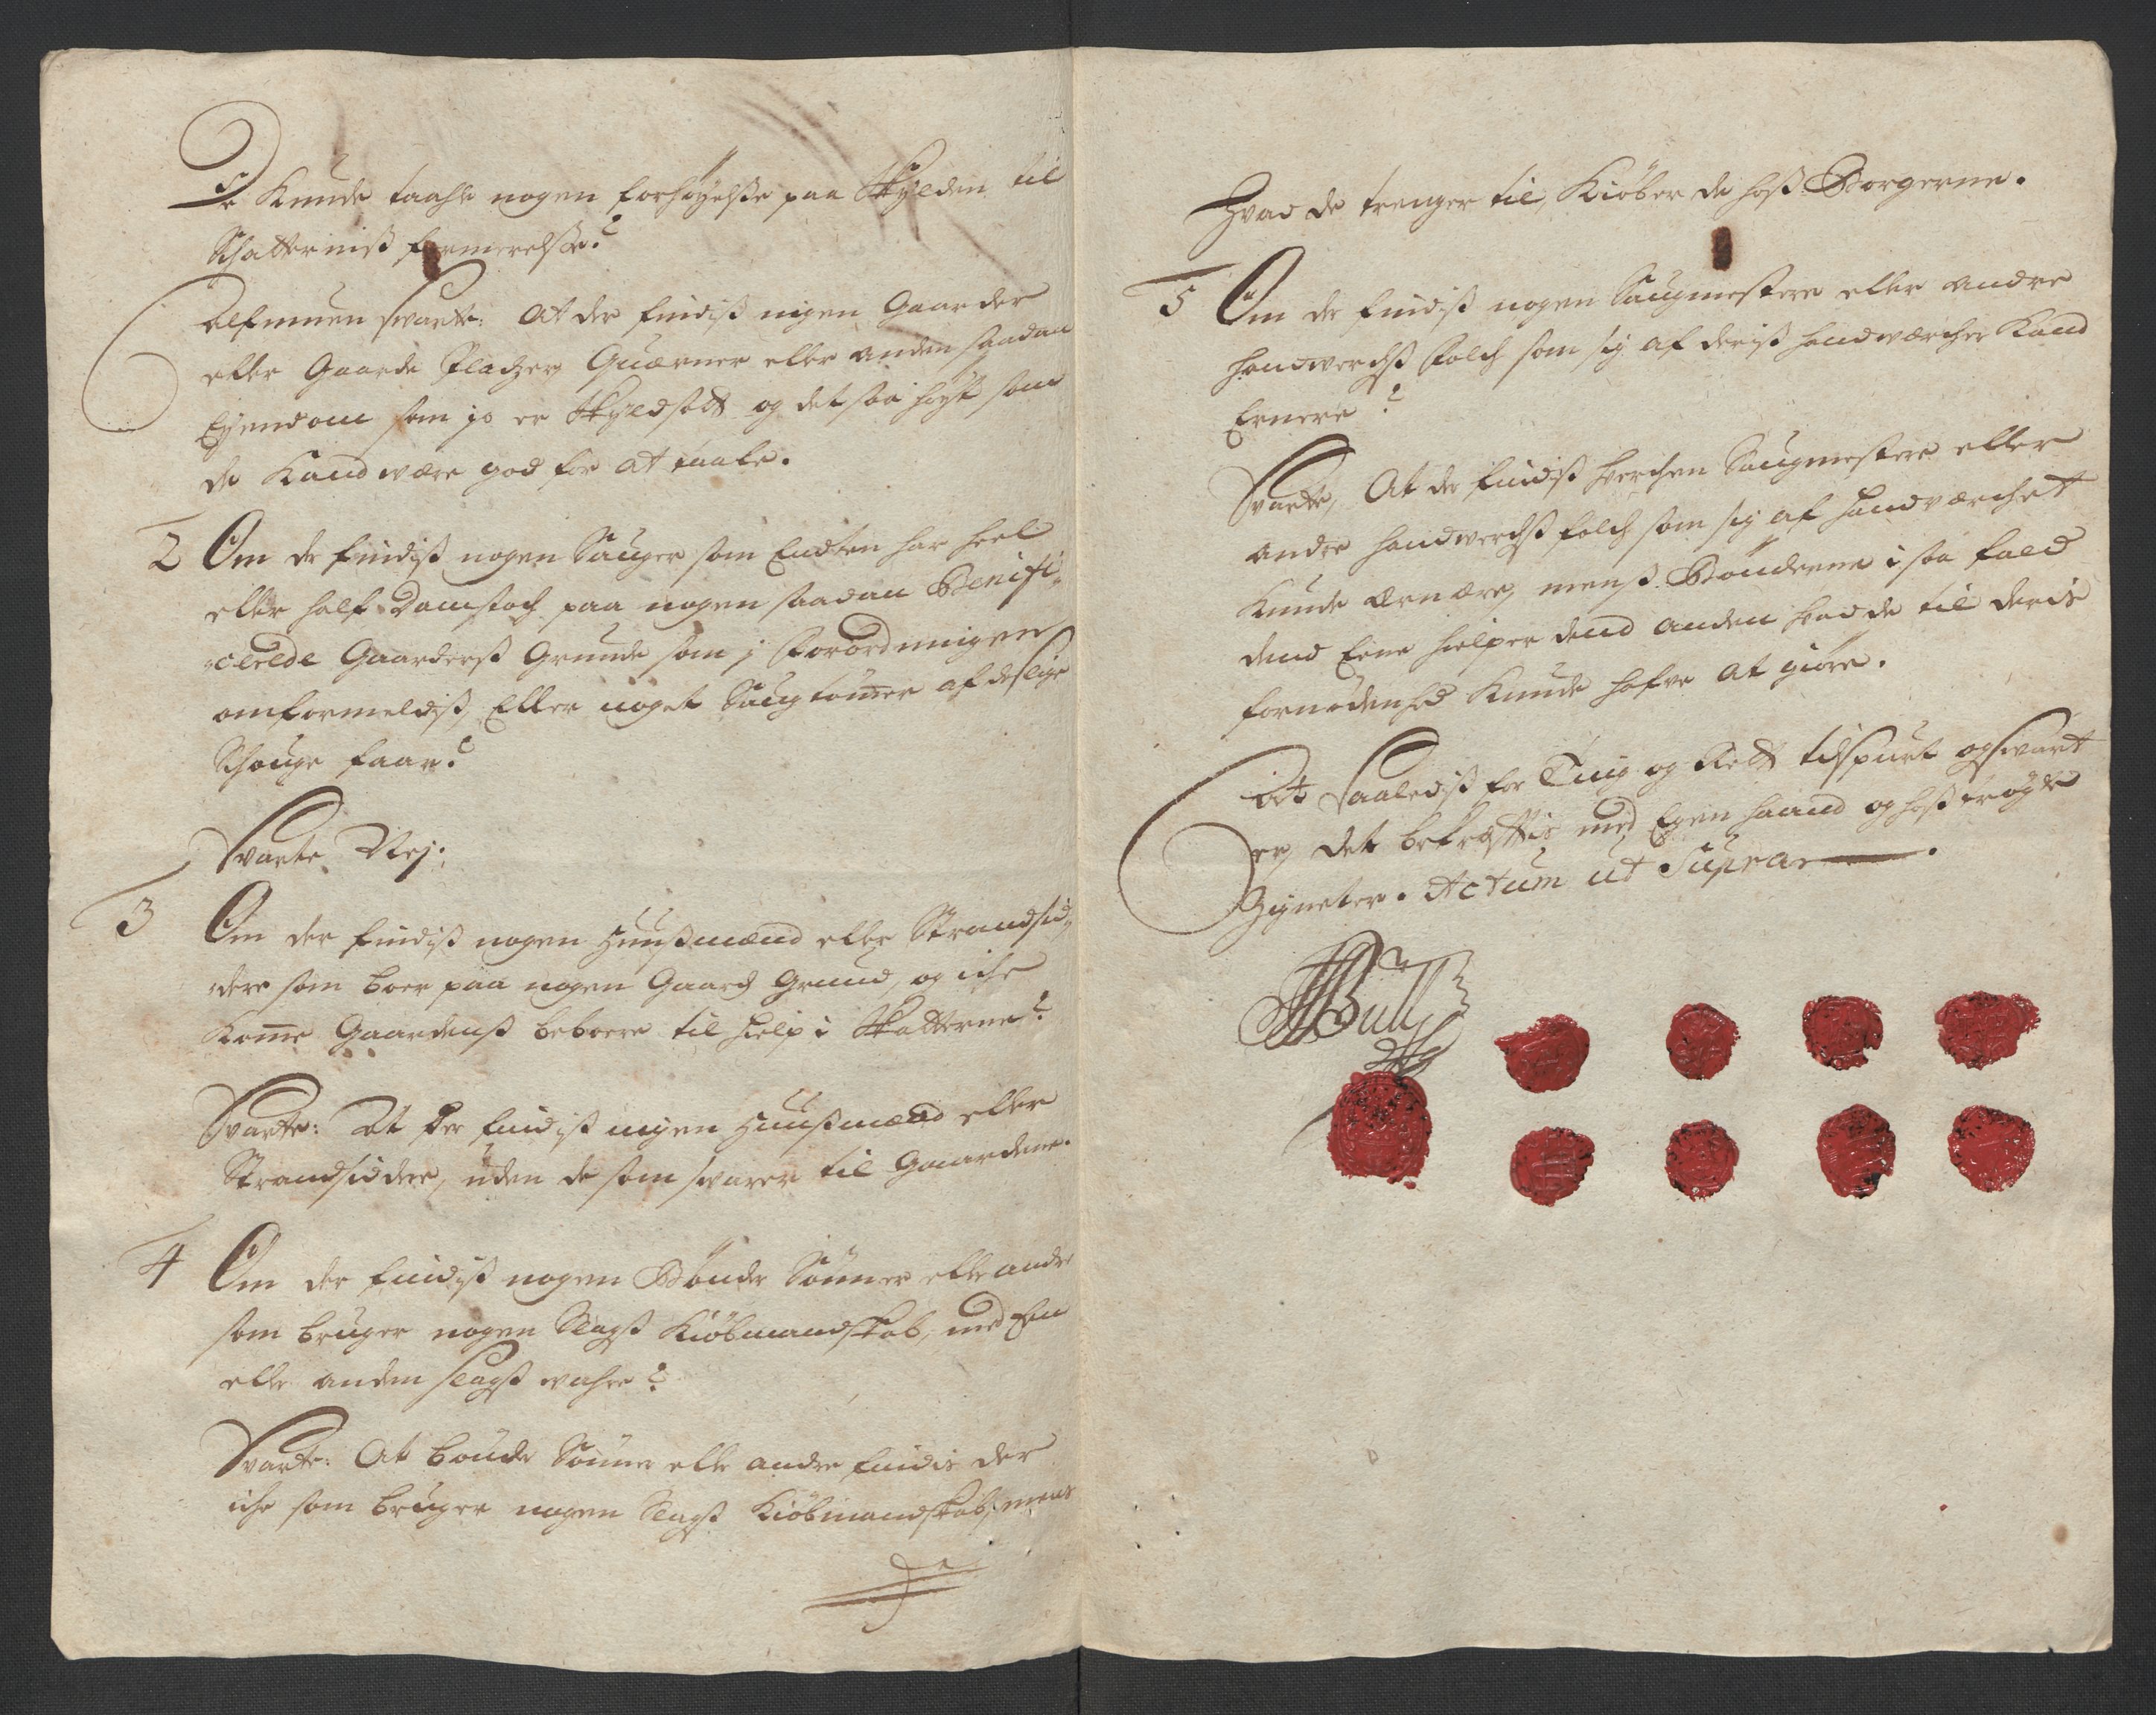 De Kunde taahle nogen forhøyelsße paa Skylden til
Schatterniß formerelsße?
Allmuen svarte: At der findiß ingen Gaarder
eller Gaarde Pladzer Quærner eller anden saadan
Eyendom som jo er Skyldsadt og det saa høyt som
de Kand være god for at taale.
2 Om der findiß nogen Sauger som Endten har heel
eller half Damstoch paa nogen saadan Benifi-
-cerede Gaarderß Grunde som j Forordningen
omformeldiß, Eller noget Saugtømer af deslige
Schouge faar?
Svarte Nej:
3 Om der findiß nogen Huußmænd eller Strandsid-
-dere som boer paa nogen Gaardß Grund, og iche
Kome Gaardenß beboere til hielp i Skatterne?
Svarte: At der findiß ingen Huußmænd eller
Strandsiddere, uden de som svarer til Gaardene.
4 Om der findiß nogen Bønder Sønner elle andre
som bruger nogen Slagß Kiøbmandskab, med Een
elle anden slagß vahre?
Svarte: At bønder Sønner elle andre findis der
iche som bruger nogen Slagß Kiøbmandskab, mens
Hvad de trenger til, Kiøber de hoß Borgerne.
5 Om der findiß nogen Saugmestere eller andre
handverchß Folch som sig af deriß handværcher Kand
Ernere?
Svarte, At der findiß hverchen Saugmestere eller
andre handverchß folch som sig af Handværchet
Kunde Ernære, menß Bønderne i saa fald
dend Eene hielper dend anden hvad de til deris
fornødenhed Kunde hafve at giøre.
At Saalediß for Ting og Rett tilspurt og svart
er, det bekræfftis med Egen haand og hoß trøgte
Zigneter. Actum ut Supra